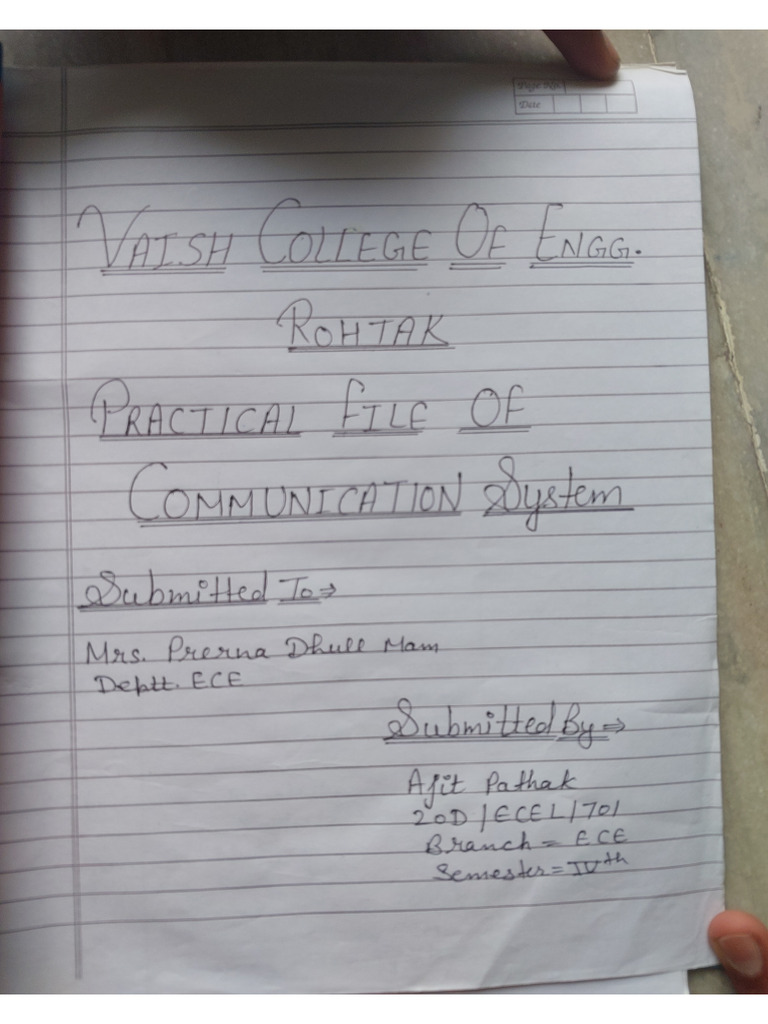 Page No.
Date
VAISH COLLEGE OF ENGG.
ROHTAK
PRACTICAL FILE OF
COMMUNICATION System
Submitted To⇒
Mrs. Prerna Dhull Mam
Deptt. ECE
Submitted By⇒
Ajit Pathak
20D/ECEL/701
Branch = ECE
Semester = IVth